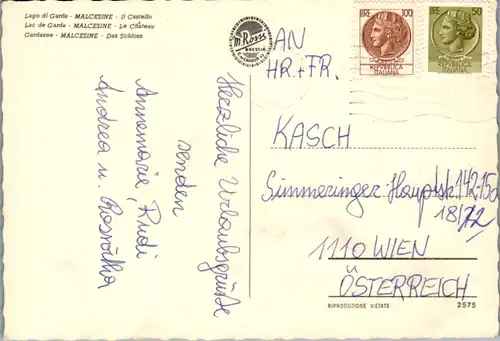 Lago di Garda - MALCESINE - Il Castello
Lac de Garda - MALCESINE - Le Château
Gardasee - MALCESINE - Das Schloss
m. Rossi
BRESCIA
Herzliche Urlaubsgrüße
senden
Annemarie, Rudi
Andrea u.
LIRE 100
REPUBBLICA
ITALIANA
REPUBBLICA
ITALIANA
AN
HR. + FR.
KASCH
Simmeringer Hauptstr. 142-150
18/12
1110 WIEN
ÖSTERREICH
RIPRODUZIONE VIETATA
2575